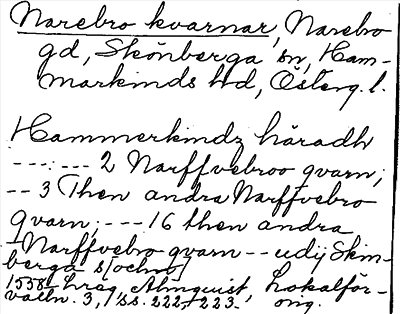 Narebro kvarnar, Narebro
gd, Skönberga sn, Ham-
markinds hd, Österg. l.
Hammerkindz häradh
---:--- 2 Narffvebroo qvarn;
-- 3 Then andra Narffvebro
qvarn; --- 16 then andra
Narffvebro qvarn -- udij Skim-
berga s[ochn]
1558 Almquist, Lokalför-
valtn. 3, 1 ss. 222, 223. orig.